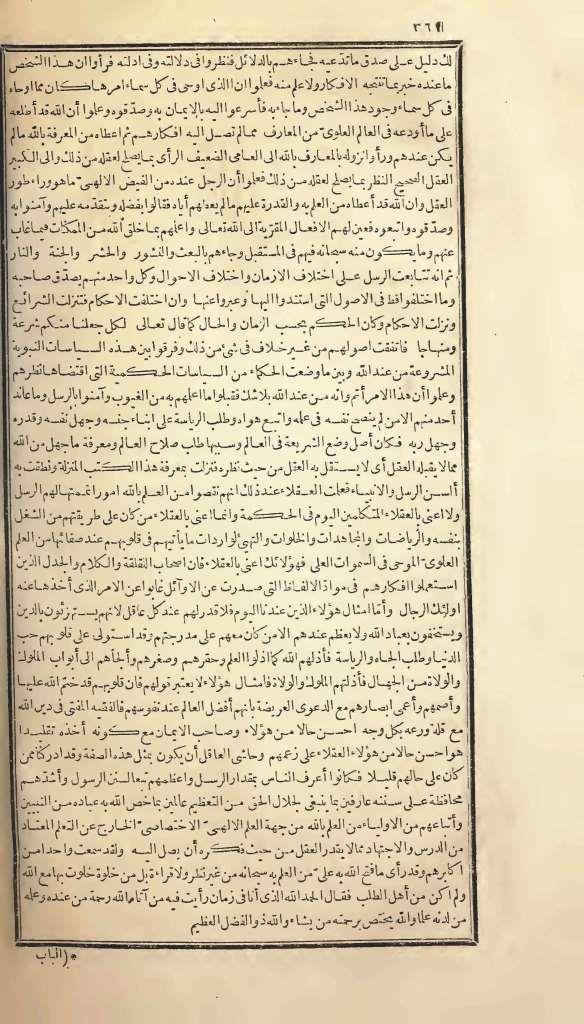 ٣٦١
لك دليل على صدق ما تدعيه فجاءهم بالدلائل فنظروا فى دلالته وفى ادلته فرأوا ان هذا الشخص
ما عنده خبر بما تنتجه الافكار ولا علم منه فعلموا ان الذى اوحى فى كل سماء أمرها كان مما اوحاه
فى كل سماء وجود هذا الشخص وما جاء به فأسرعوا اليه بالايمان به وصدّقوه وعلموا أن الله قد أطلعه
على ما أودعه فى العالم العلوىّ من المعارف ممالم تصل اليه افكارهم ثم اعطاه من المعرفة بالله مالم
يكن عندهم ورأوا نزوله بالمعارف بالله الى العامى الضعيف الرأى بما يصلح لعقله من ذلك والى الكبير
العقل الصحيح النظر بما يصلح لعقله من ذلك فعلموا أن الرجل عنده من الفيض الالهىّ ما هو وراء طور
العقل وان الله قد أعطاه من العلم به والقدرة عليهم مالم يعطهم أياه فقالوا بفضله وتقدّمه عليهم وآمنوا به
وصدّقوه واتبعوه فعين لهم الافعال المقرّبة الى الله تعالى واعلمهم بما خلق الله من الممكنات فيما غاب
عنهم وما يكون منه سبحانه فيهم فى المستقبل وجاءهم بالبعث والنشور والحشر والجنة والنار
ثم انه تتابعت الرسل على اختلاف الازمان واختلاف الاحوال وكل واحد منهم يصدّق صاحبه
وما اختلفوا قط فى الاصول التى استندوا اليها وعبروا عنها وان اختلفت الاحكام فتنزلت الشرائع
ونزلت الاحكام وكان الحكم بحسب الزمان والحال كما قال تعالى لكل جعلنا منكم شرعة
ومنهاجا فاتفقت اصولهم من غير خلاف فى شئ من ذلك وفرقوا بين هذه السياسات النبوية
المشروعة من عند الله وبين ما وضعت الحكماء من السياسات الحكمية التى اقتضاها نظرهم
وعلموا أن هذا الامر أتم وانه من عند الله بلا شك فقبلوا ما اعلمهم به من الغيوب وآمنوا بالرسل وما عاند
أحد منهم الا من لم ينصح نفسه فى علمه واتبع هواه وطلب الرياسة على ابناء جنسه وجهل نفسه وقدره
وجهل ربه فكان أصل وضع الشريعة فى العالم وسببها طلب صلاح العالم ومعرفة ما جهل من الله
مما لا يقبله العقل أى لا يستقل به العقل من حيث نظره فنزلت بمعرفة هذا الكتب المنزلة ونطقت به
ألسن الرسل والانبياء فعلمت العقلاء عند ذلك انهم نقصوا من العلم بالله امورا تممتها لهم الرسل
ولا اعنى بالعقلاء المتكلمين اليوم فى الحكمة وانما اعنى بالعقلاء من كان على طريقتهم من الشغل
بنفسه والرياضات والمجاهدات والخلوات والتهيئ لواردات ما يأتيهم فى قلوبهم عند صفائها من العلم
العلوىّ الموحى فى السموات العلى فهؤلائك اعنى بالعقلاء فان اصحاب اللقلقة والكلام والجدل الذين
استعملوا افكارهم فى موادّ الالفاظ التى صدرت عن الاوائل غابوا عن الامر الذى أخذها عنه
اولئك الرجال وأمّا امثال هؤلاء الذين عندنا اليوم فلا قدر لهم عند كل عاقل لانهم يستهزئون بالدين
ويستخفون بعباد الله ولا يعظم عندهم الا من كان معهم على مدرجتهم وقد استولى على قلوبهم حب
الدنيا وطلب الجاه والرياسة فأذلهم الله كما اذلوا العلم وحقرهم وصغرهم وألجأهم الى أبواب الملوك
والولاة من الجهال فأذلتهم الملوك والولاة فأمثال هؤلاء لا يعتبر قولهم فان قلوبهم قد ختم الله عليها
وأصمهم وأعمى ابصارهم مع الدعوى العريضة بانهم أفضل العالم عند نفوسهم فالفقيه المفتى فى دين الله
مع قلة ورعه بكل وجه احسن حالا من هؤلاء وصاحب الايمان مع كونه أخذه تقليدا
هو احسن حالا من هؤلاء العقلاء على زعمهم وحاشى العاقل أن يكون بمثل هذه الصفة وقد ادركنا ممن
كان على حالهم قليلا فكانوا أعرف الناس بمقدار الرسل واعظمهم تبعا لسنن الرسول وأشدّهم
محافظة على سننه عارفين بما ينبغى لجلال الحق من التعظيم عالمين بما خص الله به عباده من النبيين
وأتباعهم من الاولياء من العلم بالله من جهة العلم الالهىّ الاختصاصىّ الخارج عن التعلم المعتاد
من الدرس والاجتهاد مما لا يقدر العقل من حيث فكره أن يصل اليه ولقد سمعت واحدا من
اكابرهم وقد رأى ما فتح الله به علىّ من العلم به سبحانه من غير نظر ولا قراءة بل من خلوة خلوت بها مع الله
ولم اكن من أهل الطلب فقال الحمد الله الذى أنا فى زمان رأيت فيه من آتاه الله رحمة من عنده وعلمه
من لدنه علما والله يختص برحمته من يشاء والله ذو الفضل العظيم
* (الباب